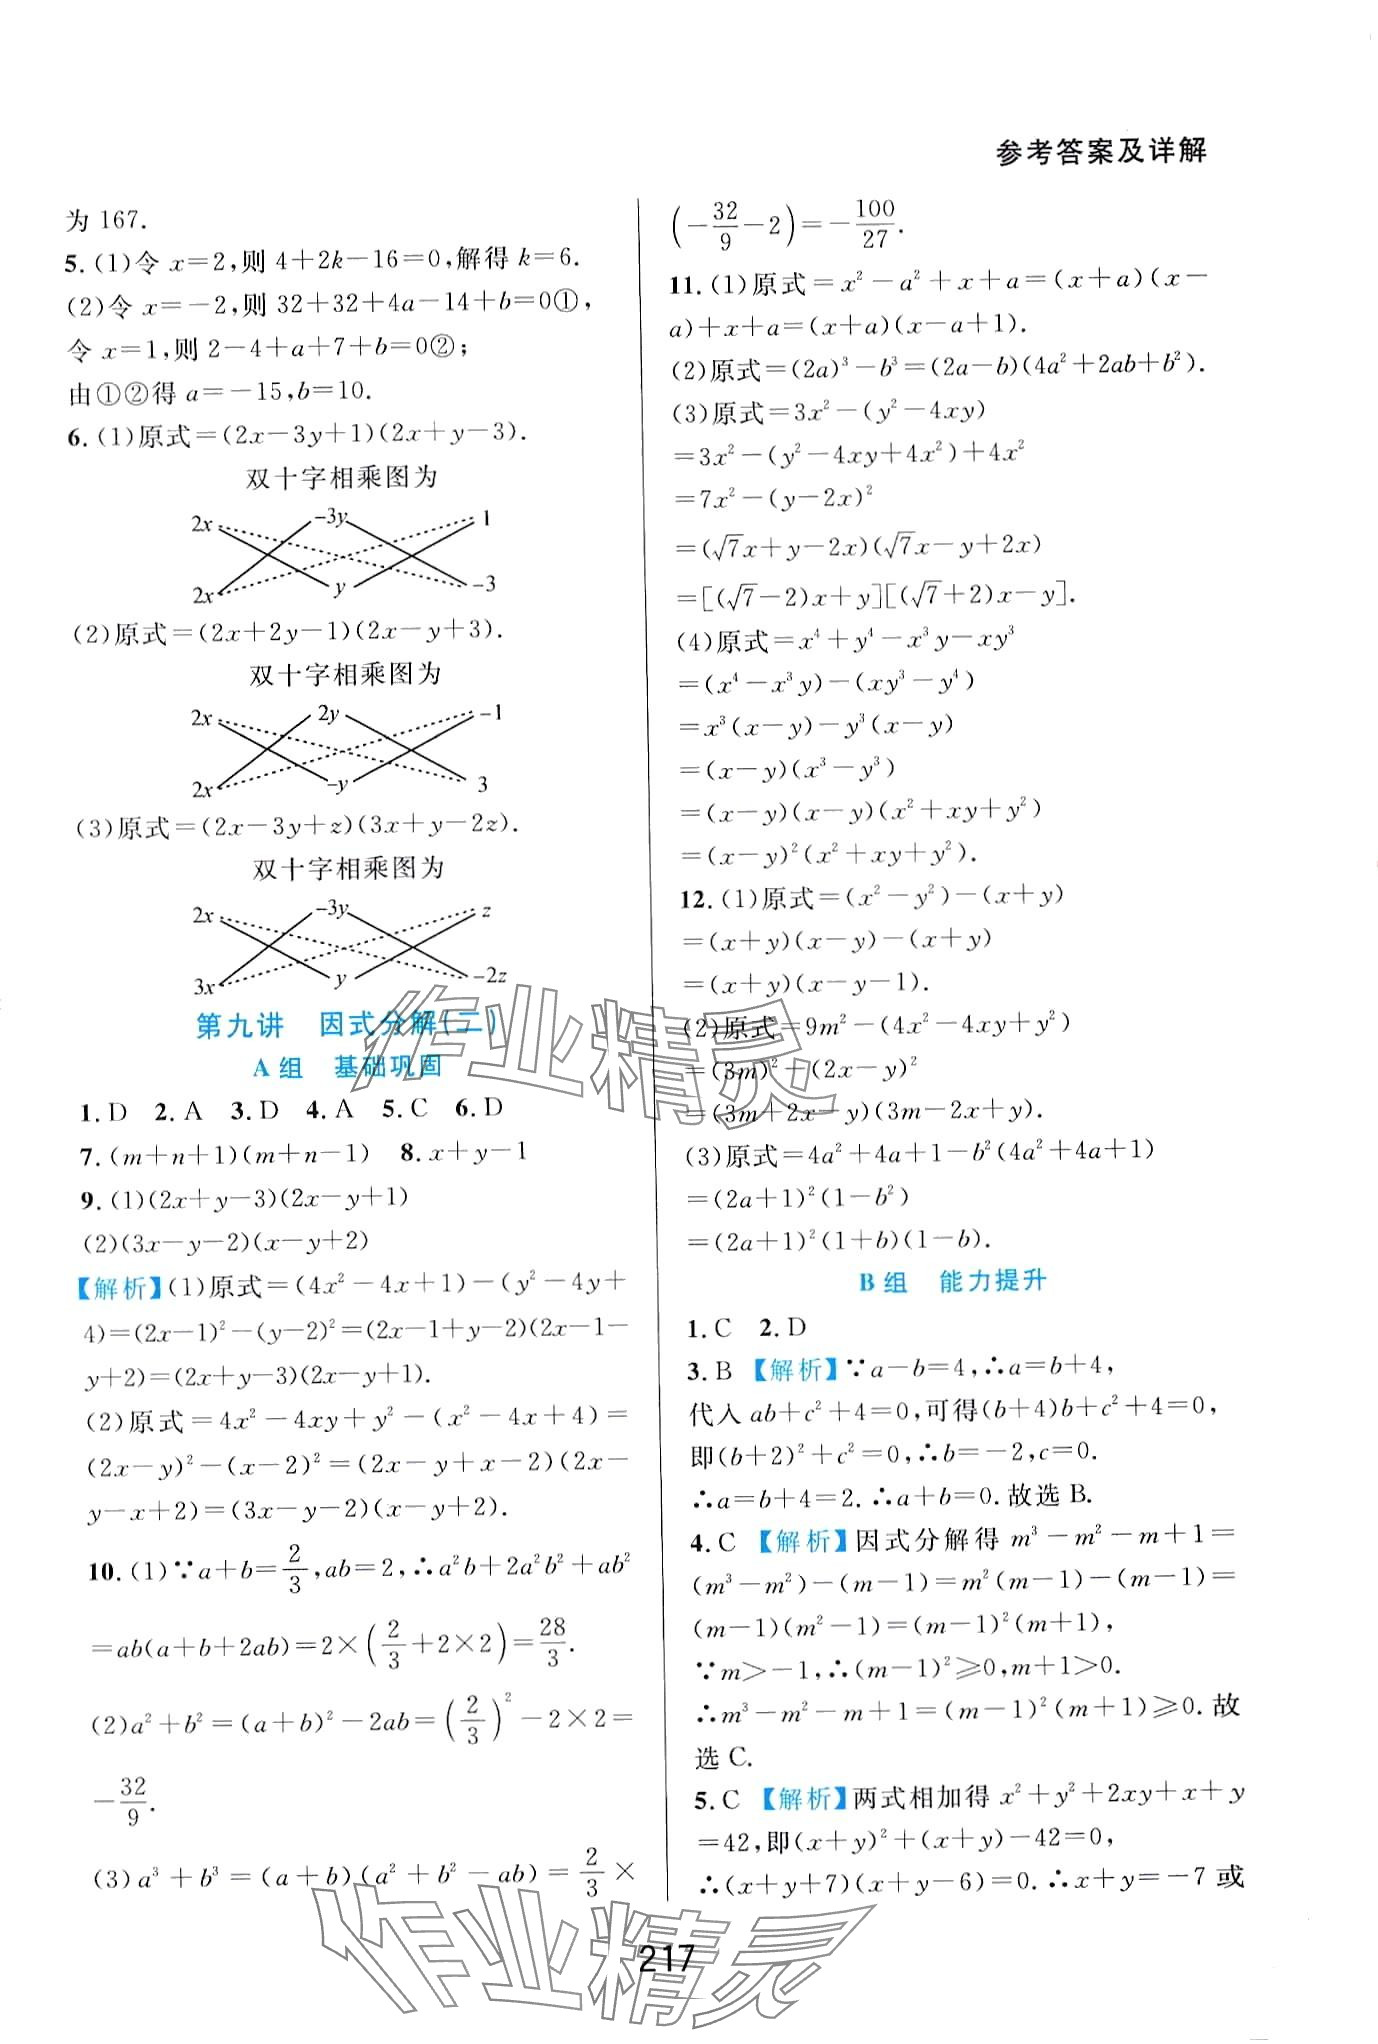 参考答案及详解
为 167.
5. (1)令 x=2,则 4+2k-16=0,解得 k=6.
(2)令 x=-2,则 32+32+4a-14+b=0①,
令 x=1,则 2-4+a+7+b=0②;
由①②得 a=-15,b=10.
6. (1)原式=(2x-3y+1)(2x+y-3).
双十字相乘图为
2x -3y 1
2x y -3
(2)原式=(2x+2y-1)(2x-y+3).
双十字相乘图为
2x 2y -1
2x -y 3
(3)原式=(2x-3y+z)(3x+y-2z).
双十字相乘图为
2x -3y z
3x y -2z
第九讲 因式分解(二)
A 组 基础巩固
1. D 2. A 3. D 4. A 5. C 6. D
7. (m+n+1)(m+n-1) 8. x+y-1
9. (1)(2x+y-3)(2x-y+1)
(2)(3x-y-2)(x-y+2)
【解析】(1)原式=(4x²-4x+1)-(y²-4y+
4)=(2x-1)²-(y-2)²=(2x-1+y-2)(2x-1-
y+2)=(2x+y-3)(2x-y+1).
(2)原式=4x²-4xy+y²-(x²-4x+4)=
(2x-y)²-(x-2)²=(2x-y+x-2)(2x-
y-x+2)=(3x-y-2)(x-y+2).
10. (1)∵a+b=2/3,ab=2,∴a²b+2a²b²+ab²
=ab(a+b+2ab)=2×(2/3+2×2)=28/3.
(2)a²+b²=(a+b)²-2ab=(2/3)²-2×2=
-32/9.
(3)a³+b³=(a+b)(a²+b²-ab)=2/3×
(-32/9-2)=-100/27.
11. (1)原式=x²-a²+x+a=(x+a)(x-
a)+x+a=(x+a)(x-a+1).
(2)原式=(2a)³-b³=(2a-b)(4a²+2ab+b²).
(3)原式=3x²-(y²-4xy)
=3x²-(y²-4xy+4x²)+4x²
=7x²-(y-2x)²
=(√7x+y-2x)(√7x-y+2x)
=[(√7-2)x+y][(√7+2)x-y].
(4)原式=x⁴+y⁴-x³y-xy³
=(x⁴-x³y)-(xy³-y⁴)
=x³(x-y)-y³(x-y)
=(x-y)(x³-y³)
=(x-y)(x-y)(x²+xy+y²)
=(x-y)²(x²+xy+y²).
12. (1)原式=(x²-y²)-(x+y)
=(x+y)(x-y)-(x+y)
=(x+y)(x-y-1).
(2)原式=9m²-(4x²-4xy+y²)
=(3m)²-(2x-y)²
=(3m+2x-y)(3m-2x+y).
(3)原式=4a²+4a+1-b²(4a²+4a+1)
=(2a+1)²(1-b²)
=(2a+1)²(1+b)(1-b).
B 组 能力提升
1. C 2. D
3. B 【解析】∵a-b=4,∴a=b+4,
代入 ab+c²+4=0,可得(b+4)b+c²+4=0,
即(b+2)²+c²=0,∴b=-2,c=0.
∴a=b+4=2.∴a+b=0.故选 B.
4. C 【解析】因式分解得 m³-m²-m+1=
(m³-m²)-(m-1)=m²(m-1)-(m-1)=
(m-1)(m²-1)=(m-1)²(m+1),
∵m>-1,∴(m-1)²≥0,m+1>0.
∴m³-m²-m+1=(m-1)²(m+1)≥0.故
选 C.
5. C 【解析】两式相加得 x²+y²+2xy+x+y
=42,即(x+y)²+(x+y)-42=0,
∴(x+y+7)(x+y-6)=0.∴x+y=-7 或
217
作业精灵
作业精灵